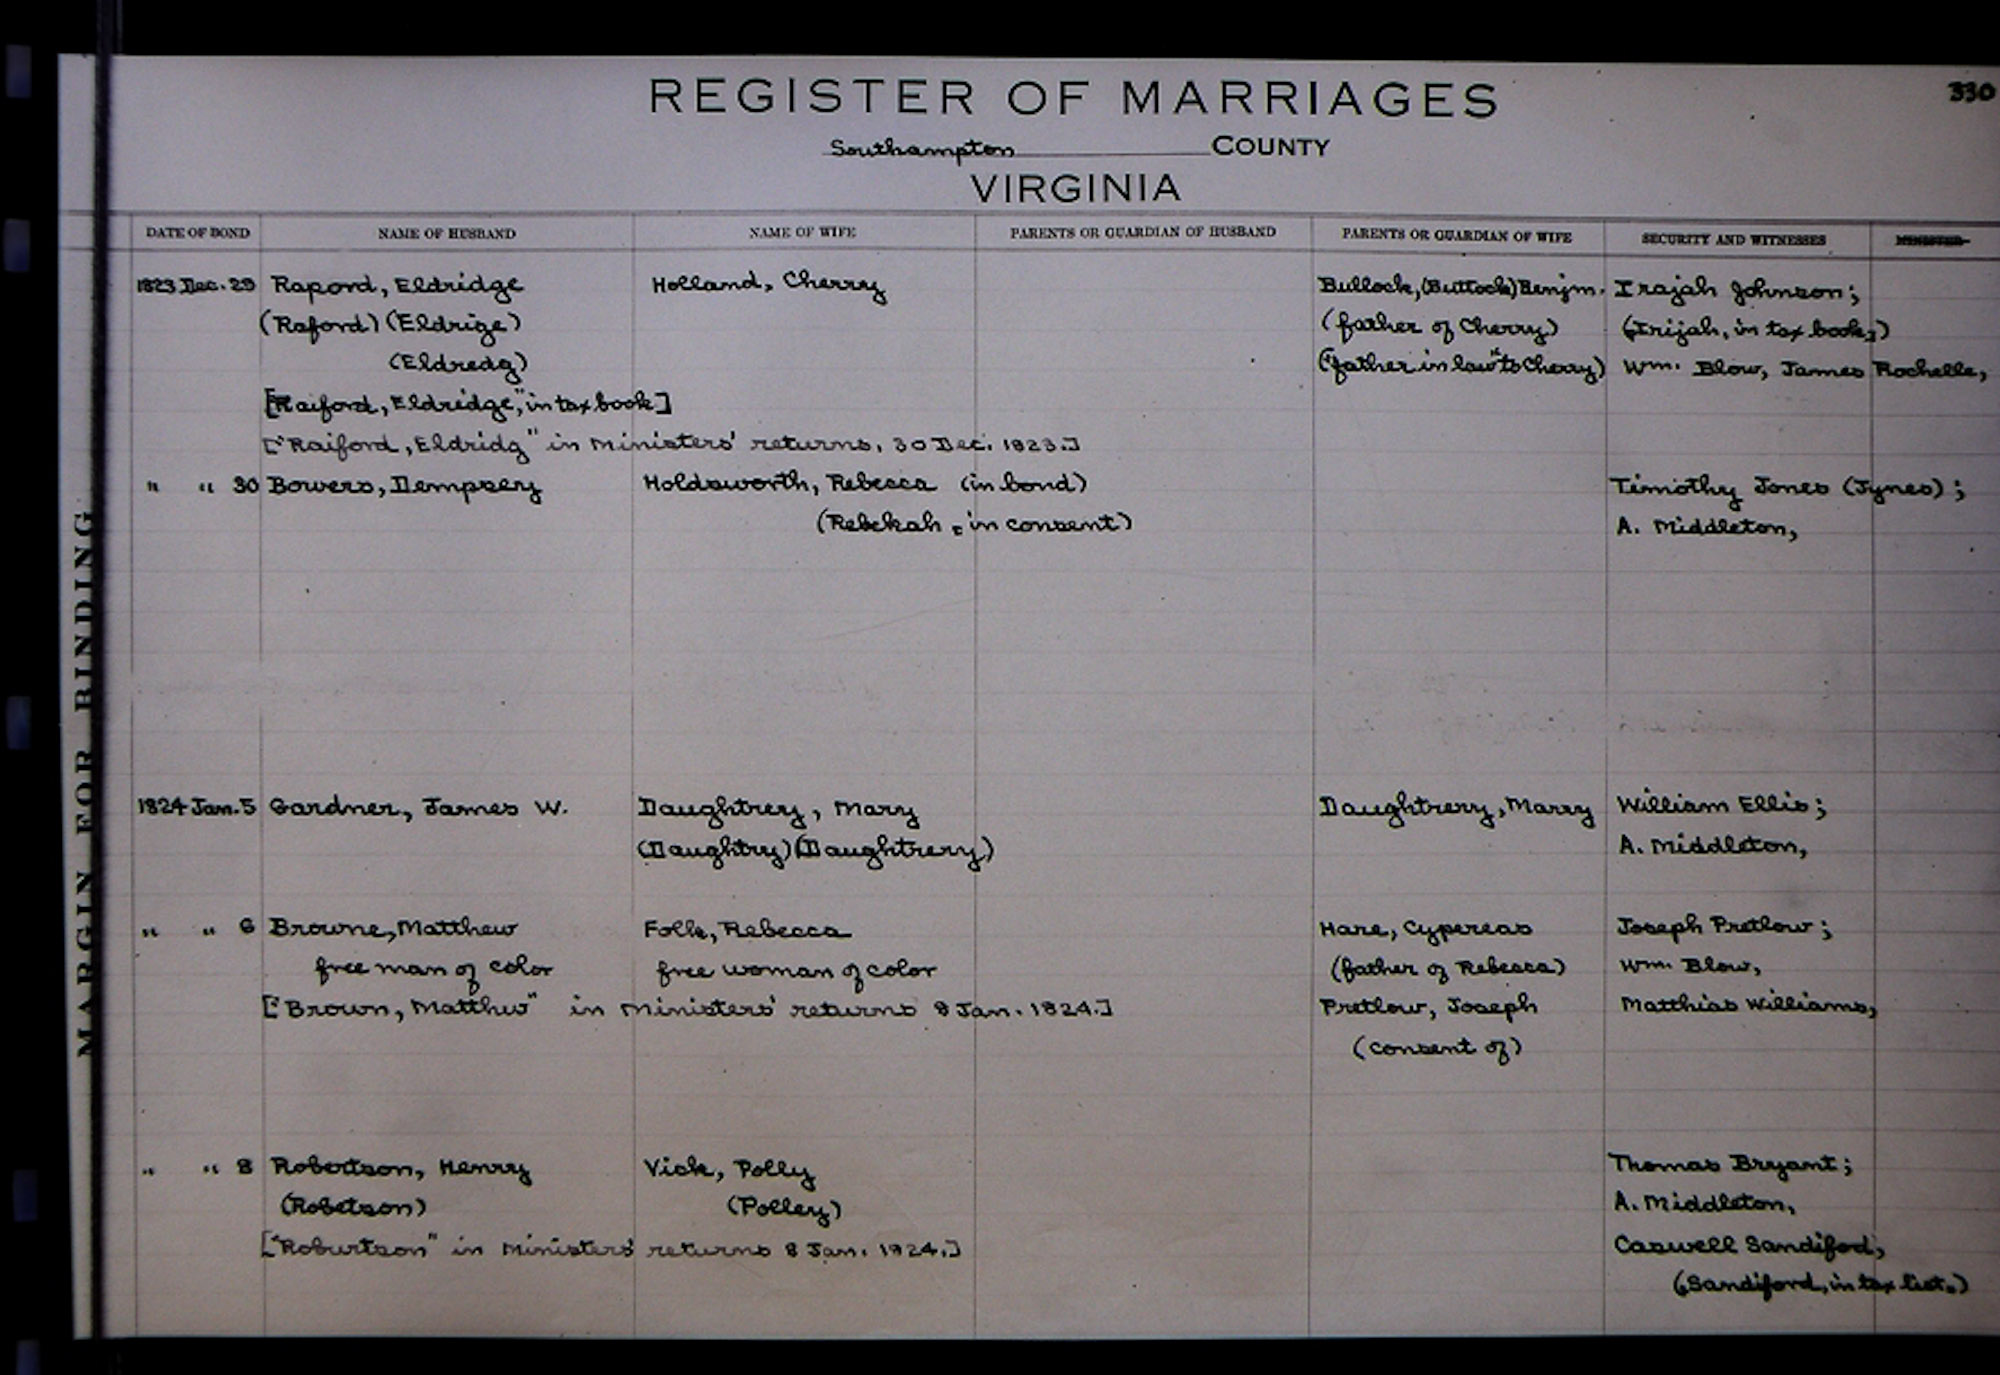 330
REGISTER OF MARRIAGES
Southampton COUNTY
VIRGINIA
MARGIN FOR BINDING
DATE OF BOND NAME OF HUSBAND NAME OF WIFE PARENTS OR GUARDIAN OF HUSBAND PARENTS OR GUARDIAN OF WIFE SECURITY AND WITNESSES MINISTER
1823 Dec. 29 Rapord, Eldridge Holland, Cherry Bullock, (Buttock) Benjm. Irajah Johnson;
(Raford) (Eldrige) (father of Cherry) (Irijah, in tax book,)
(Eldredg) ("father in law" to Cherry) Wm. Blow, James Rochelle,
["Raiford, Eldridge," in tax book]
["Raiford, Eldridg" in ministers' returns, 30 Dec. 1823.]
" " 30 Bowers, Dempsey Holdsworth, Rebecca (in bond) Timothy Jones (Jynes);
(Rebekah, in consent) A. Middleton,
1824 Jan. 5 Gardner, James W. Daughtrey, Mary Daughtrery, Marry William Ellis;
(Daughtry) (Daughtrery) A. Middleton,
" " 6 Browne, Matthew Folk, Rebecca Hare, Cypereas Joseph Pretlow;
free man of color free woman of color (father of Rebecca) Wm. Blow,
["Brown, Matthw" in ministers' returns 8 Jan. 1824.] Pretlow, Joseph Matthias Williams,
(consent of)
" " 8 Robertson, Henry Vick, Polly Thomas Bryant;
(Robetson) (Polley) A. Middleton,
["Roburtson" in ministers' returns 8 Jan. 1824.] Caswell Sandifod,
(Sandiford, in tax list.)